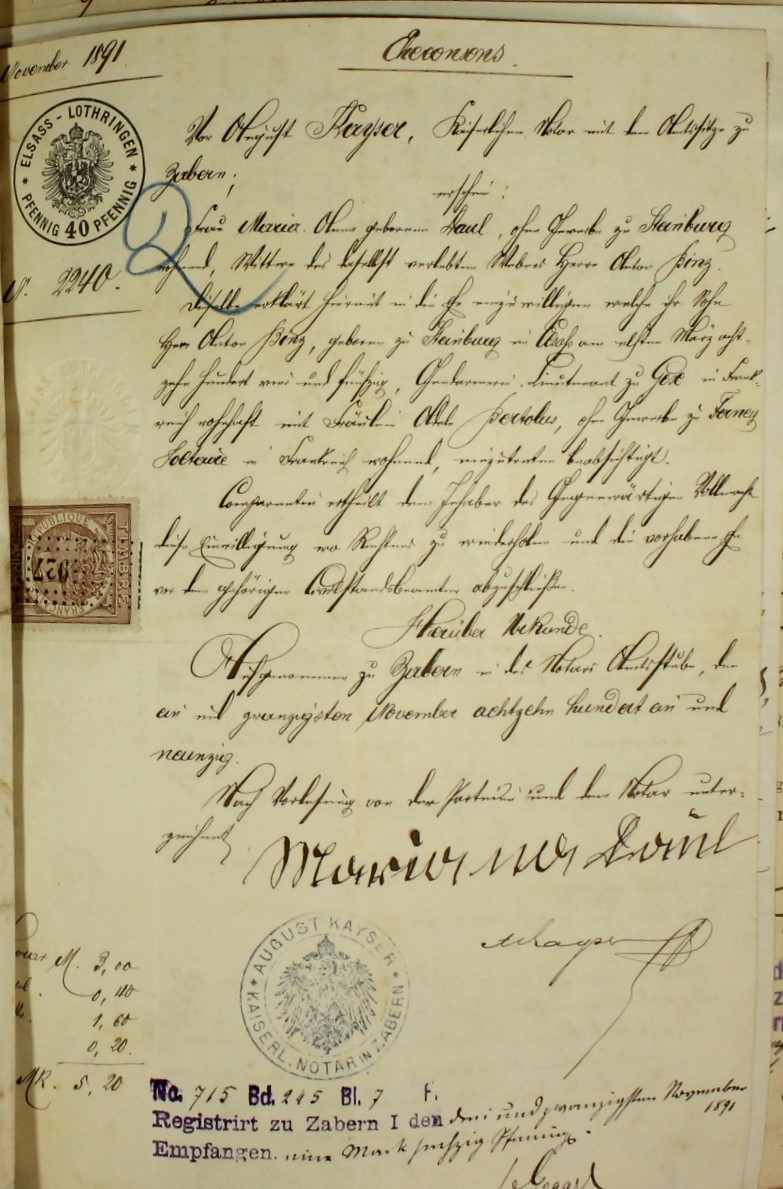 November 1891.
ELSASS-LOTHRINGEN
PFENNIG 40 PFENNIG
N. 2240.
Vor August Kayser, Kaiserlichem Notar mit dem Amtssitze zu
Zabern,
erschien:
Frau Maria Anna geborene Paul, ohne Gewerbe zu Steinburg
wohnend, Wittwe des daselbst verlebten Webers Herrn Anton
Dieselbe erklärt hiermit in die Ehe einzuwilligen welche ihr Sohn
Herr Anton geboren zu Steinburg im Elsaß am elften März acht-
zehn hundert vier und fünfzig, Gendarmerie-Lieutenant zu Gex in Frank-
reich wohnhaft mit Fräulein Bertolus, ohne Gewerbe zu Ferney
Voltaire in Frankreich wohnend, einzutreten beabsichtigt.
Comparentin ertheilt dem Inhaber des Gegenwärtigen Vollmacht
diese Einwilligung wo Rechtens zu wiederholen und die vorhabene Ehe
vor dem gehörigen Civilstandsbeamten abzuschließen.
Hierüber Urkunde.
Aufgenommen zu Zabern in des Notars Amtsstube, den
ein und zwanzigsten November achtzehn hundert ein und
neunzig.
Nach Vorlesung von der Partei und dem Notar unter-
zeichnet.
REPUBLIQUE
FRANC
TIMBRE
927
Maria Paul
AKayser
AUGUST KAYSER
KAISERL. NOTAR IN ZABERN
M. 3,00
0,40
1,60
0,20
MK. 5,20
No. 715 Bd. 245 Bl. 7 F.
Registrirt zu Zabern I den drei und zwanzigsten November
1891
Empfangen. eine Mark sechzig Pfennig.